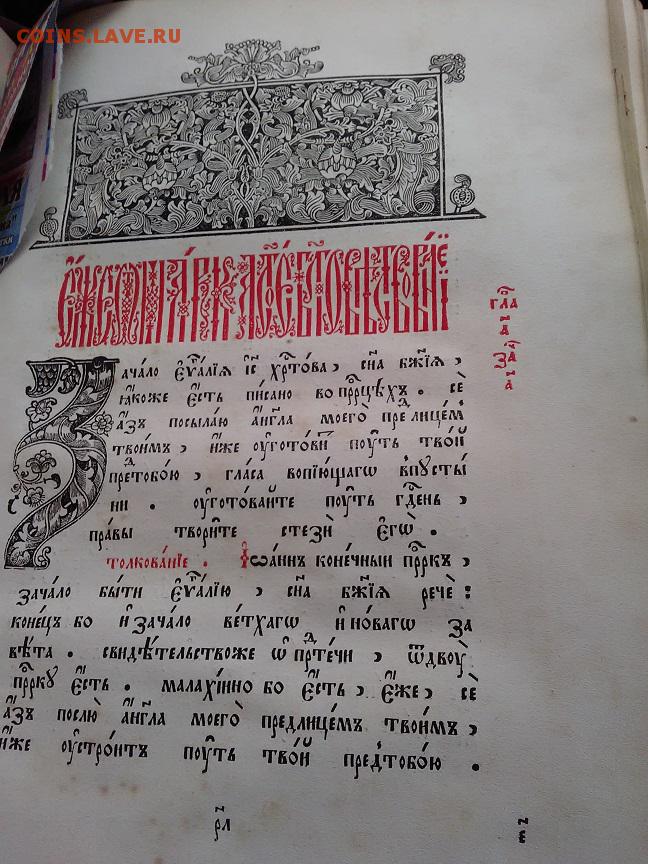 COINS.LAVE.RU
гла
а
за
а
ача́ло є҆ѵⷢ҇а́лїѧ і҆с҃ хрⷭ҇то́ва , сн҃а бж҃їѧ ,
ꙗ҆́коже є҆́сть пи́сано во прⷪ҇ро́цѣхъ . сѐ
а҆́зъ посыла́ю а҆́нг҃ла моего̀ пре́дъ лице́мъ
твои́мъ , и҆́же ᲂу҆гото́витъ пꙋ́ть тво́й
предтобо́ю , гла́са вопїю́щагѡ впꙋсты́
ни . ᲂу҆гото́вайте пꙋ́ть гдⷭ҇ень ,
пра́вы твори́те стезѝ є҆гѡ̀ .
толкова́нїе . І҆ѡа́ннъ коне́чныи прⷪ҇ркъ ,
зача́ло бы́ти є҆ѵⷢ҇а́лїю , сн҃а бж҃їѧ речѐ :
коне́цъ бо и҆ зача́ло ве́тхагѡ и҆ но́вагѡ за
вѣ́та . свидѣ́тельствоже ѡ҆ прⷣте́чи , ѿдвою̀
прⷪ҇ркꙋ є҆́сть . малахі́инно бо є҆́сть , є҆́же , сѐ
а҆́зъ послю̀ а҆́нг҃ла моего̀ предлице́мъ твои́мъ ,
и҆́же ᲂу҆стро́итъ пꙋ́ть тво́й предтобо́ю .
рл҃
є҃